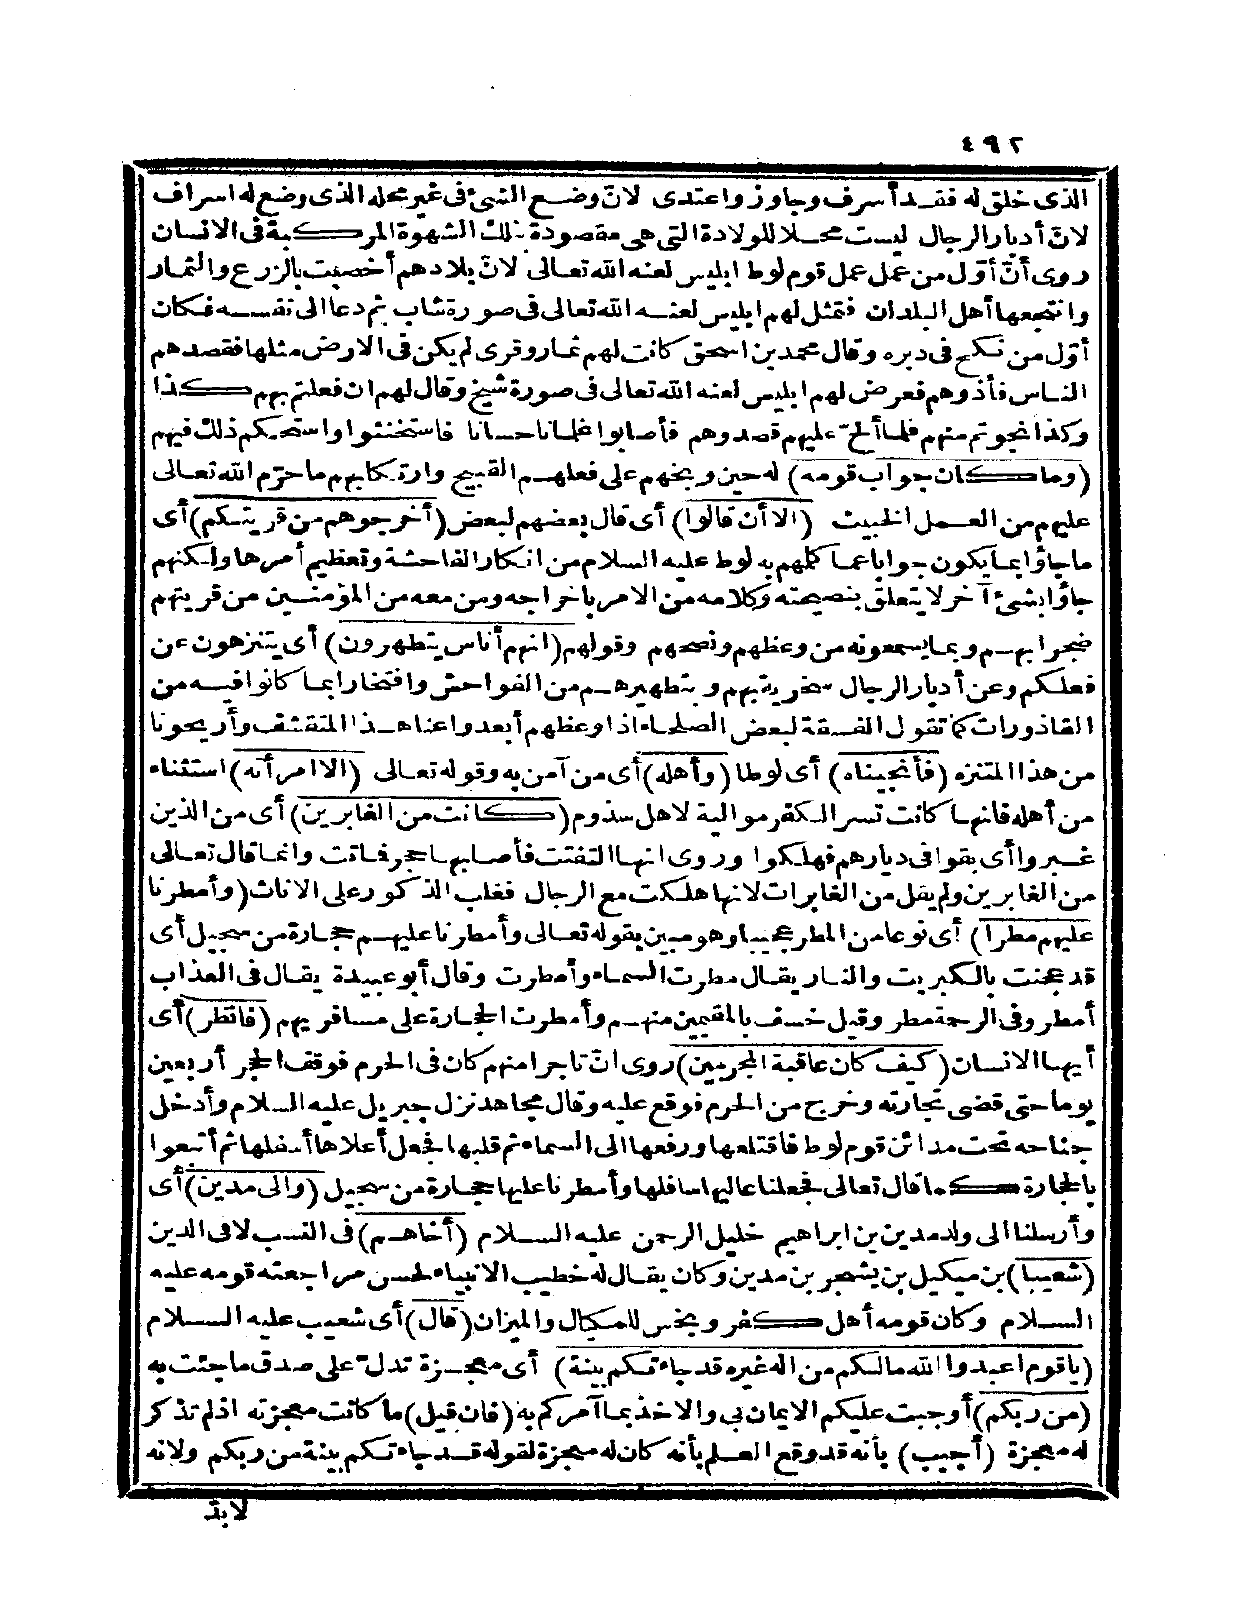 ٤٩٢
الذى خلق له فقد أسرف وجاوز واعتدى لانّ وضع الشئ فى غير محله الذى وضع له اسراف
لانّ أدبار الرجال ليست محلا للولادة التى هى مقصودة بتلك الشهوة المركبة فى الانسان
روى أنّ أوّل من عمل عمل قوم لوط ابليس لعنه الله تعالى لانّ بلادهم أخصبت بالزرع والثمار
وانتجعها أهل البلدان فتمثل لهم ابليس لعنه الله تعالى فى صورة شاب ثم دعا الى نفسه فكان
أوّل من نكح فى دبره وقال محمد بن اسحق كانت لهم ثمار وقرى لم يكن فى الارض مثلها فقصدهم
الناس فأذوهم فعرض لهم ابليس لعنه الله تعالى فى صورة شيخ وقال لهم ان فعلتم بهم كذا
وكذا نجوتم منهم فلما ألحّ عليهم قصدوهم فأصابوا غلمانا حسانا فاستخنثوا واستحكم ذلك فيهم
(وما كان جواب قومه) له حين وبخهم على فعلهم القبيح وارتكابهم ما حرّم الله تعالى
عليهم من العمل الخبيث (الا أن قالوا) أى قال بعضهم لبعض (أخرجوهم من قريتكم) أى
ما جاؤا بما يكون جوابا عما كلمهم به لوط عليه السلام من انكار الفاحشة وتعظيم أمرها ولكنهم
جاؤا بشئ آخر لا يتعلق بنصيحته وكلامه من الامر باخراجه ومن معه من المؤمنين من قريتهم
ضجرا بهم وبما يسمعونه من وعظهم ونصحهم وقولهم (انهم أناس يتطهرون) أى يتنزهون عن
فعلكم وعن أدبار الرجال سخرية بهم وبتطهيرهم من الفواحش وافتخارا بما كانوا فيه من
القاذورات كما تقول الفسقة لبعض الصلحاء اذا وعظهم أبعدوا عنا هذا المتقشف وأريحونا
من هذا المتنزه (فأنجيناه) أى لوطا (وأهله) أى من آمن به وقوله تعالى (الا امرأته) استثناء
من أهله فانها كانت تسر الكفر موالية لاهل سذوم (كانت من الغابرين) أى من الذين
غبروا أى بقوا فى ديارهم فهلكوا وروى انها التفتت فأصابها حجر فماتت وانما قال تعالى
من الغابرين ولم يقل من الغابرات لانها هلكت مع الرجال فغلب الذكور على الاناث (وأمطرنا
عليهم مطرا) أى نوعا من المطر عجيبا وهو مبين بقوله تعالى وأمطرنا عليهم حجارة من سجيل أى
قد عجنت بالكبريت والنار يقال مطرت السماء وأمطرت وقال أبو عبيدة يقال فى العذاب
أمطر وفى الرحمة مطر وقيل خسف بالمقيمين منهم وأمطرت الحجارة على مسافريهم (فانظر) أى
أيها الانسان (كيف كان عاقبة المجرمين) روى انّ تاجرا منهم كان فى الحرم فوقف الحجر أربعين
يوما حتى قضى تجارته وخرج من الحرم فوقع عليه وقال مجاهد نزل جبريل عليه السلام وأدخل
جناحه تحت مدائن قوم لوط فاقتلعها ورفعها الى السماء ثم قلبها فجعل أعلاها أسفلها ثم أتبعوا
بالحجارة كما قال تعالى فجعلنا عاليها سافلها وأمطرنا عليها حجارة من سجيل (والى مدين) أى
وأرسلنا الى ولد مدين بن ابراهيم خليل الرحمن عليه السلام (أخاهم) فى النسب لا فى الدين
(شعيبا) بن ميكيل بن يشجر بن مدين وكان يقال له خطيب الانبياء لحسن مراجعته قومه عليه
السلام وكان قومه أهل كفر وبخس للمكيال والميزان (قال) أى شعيب عليه السلام
(يا قوم اعبدوا الله مالكم من اله غيره قد جاءتكم بينة) أى معجزة تدلّ على صدق ما جئت به
(من ربكم) أوجبت عليكم الايمان بى والاخذ بما آمركم به (فان قيل) ما كانت معجزته اذ لم تذكر
له معجزة (أجيب) بأنه قد وقع العلم بأنه كان له معجزة لقوله قد جاءتكم بينة من ربكم ولانه
لا بدّ